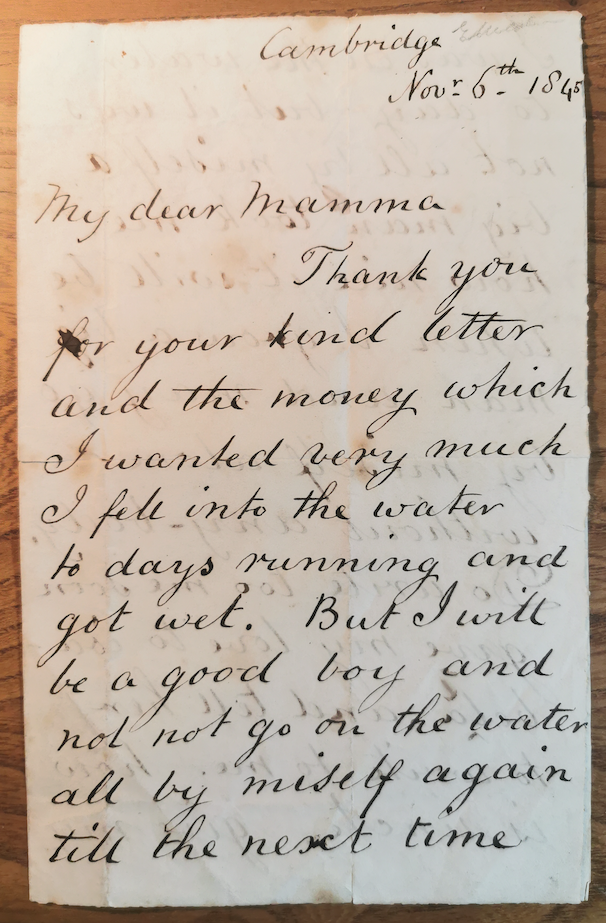 Cambridge
Novr 6th 1845
My dear Mamma
Thank you
for your kind letter
and the money which
I wanted very much
I fell into the water
to days running and
got wet. But I will
be a good boy and
not not go on the water
all by miself again
till the next time